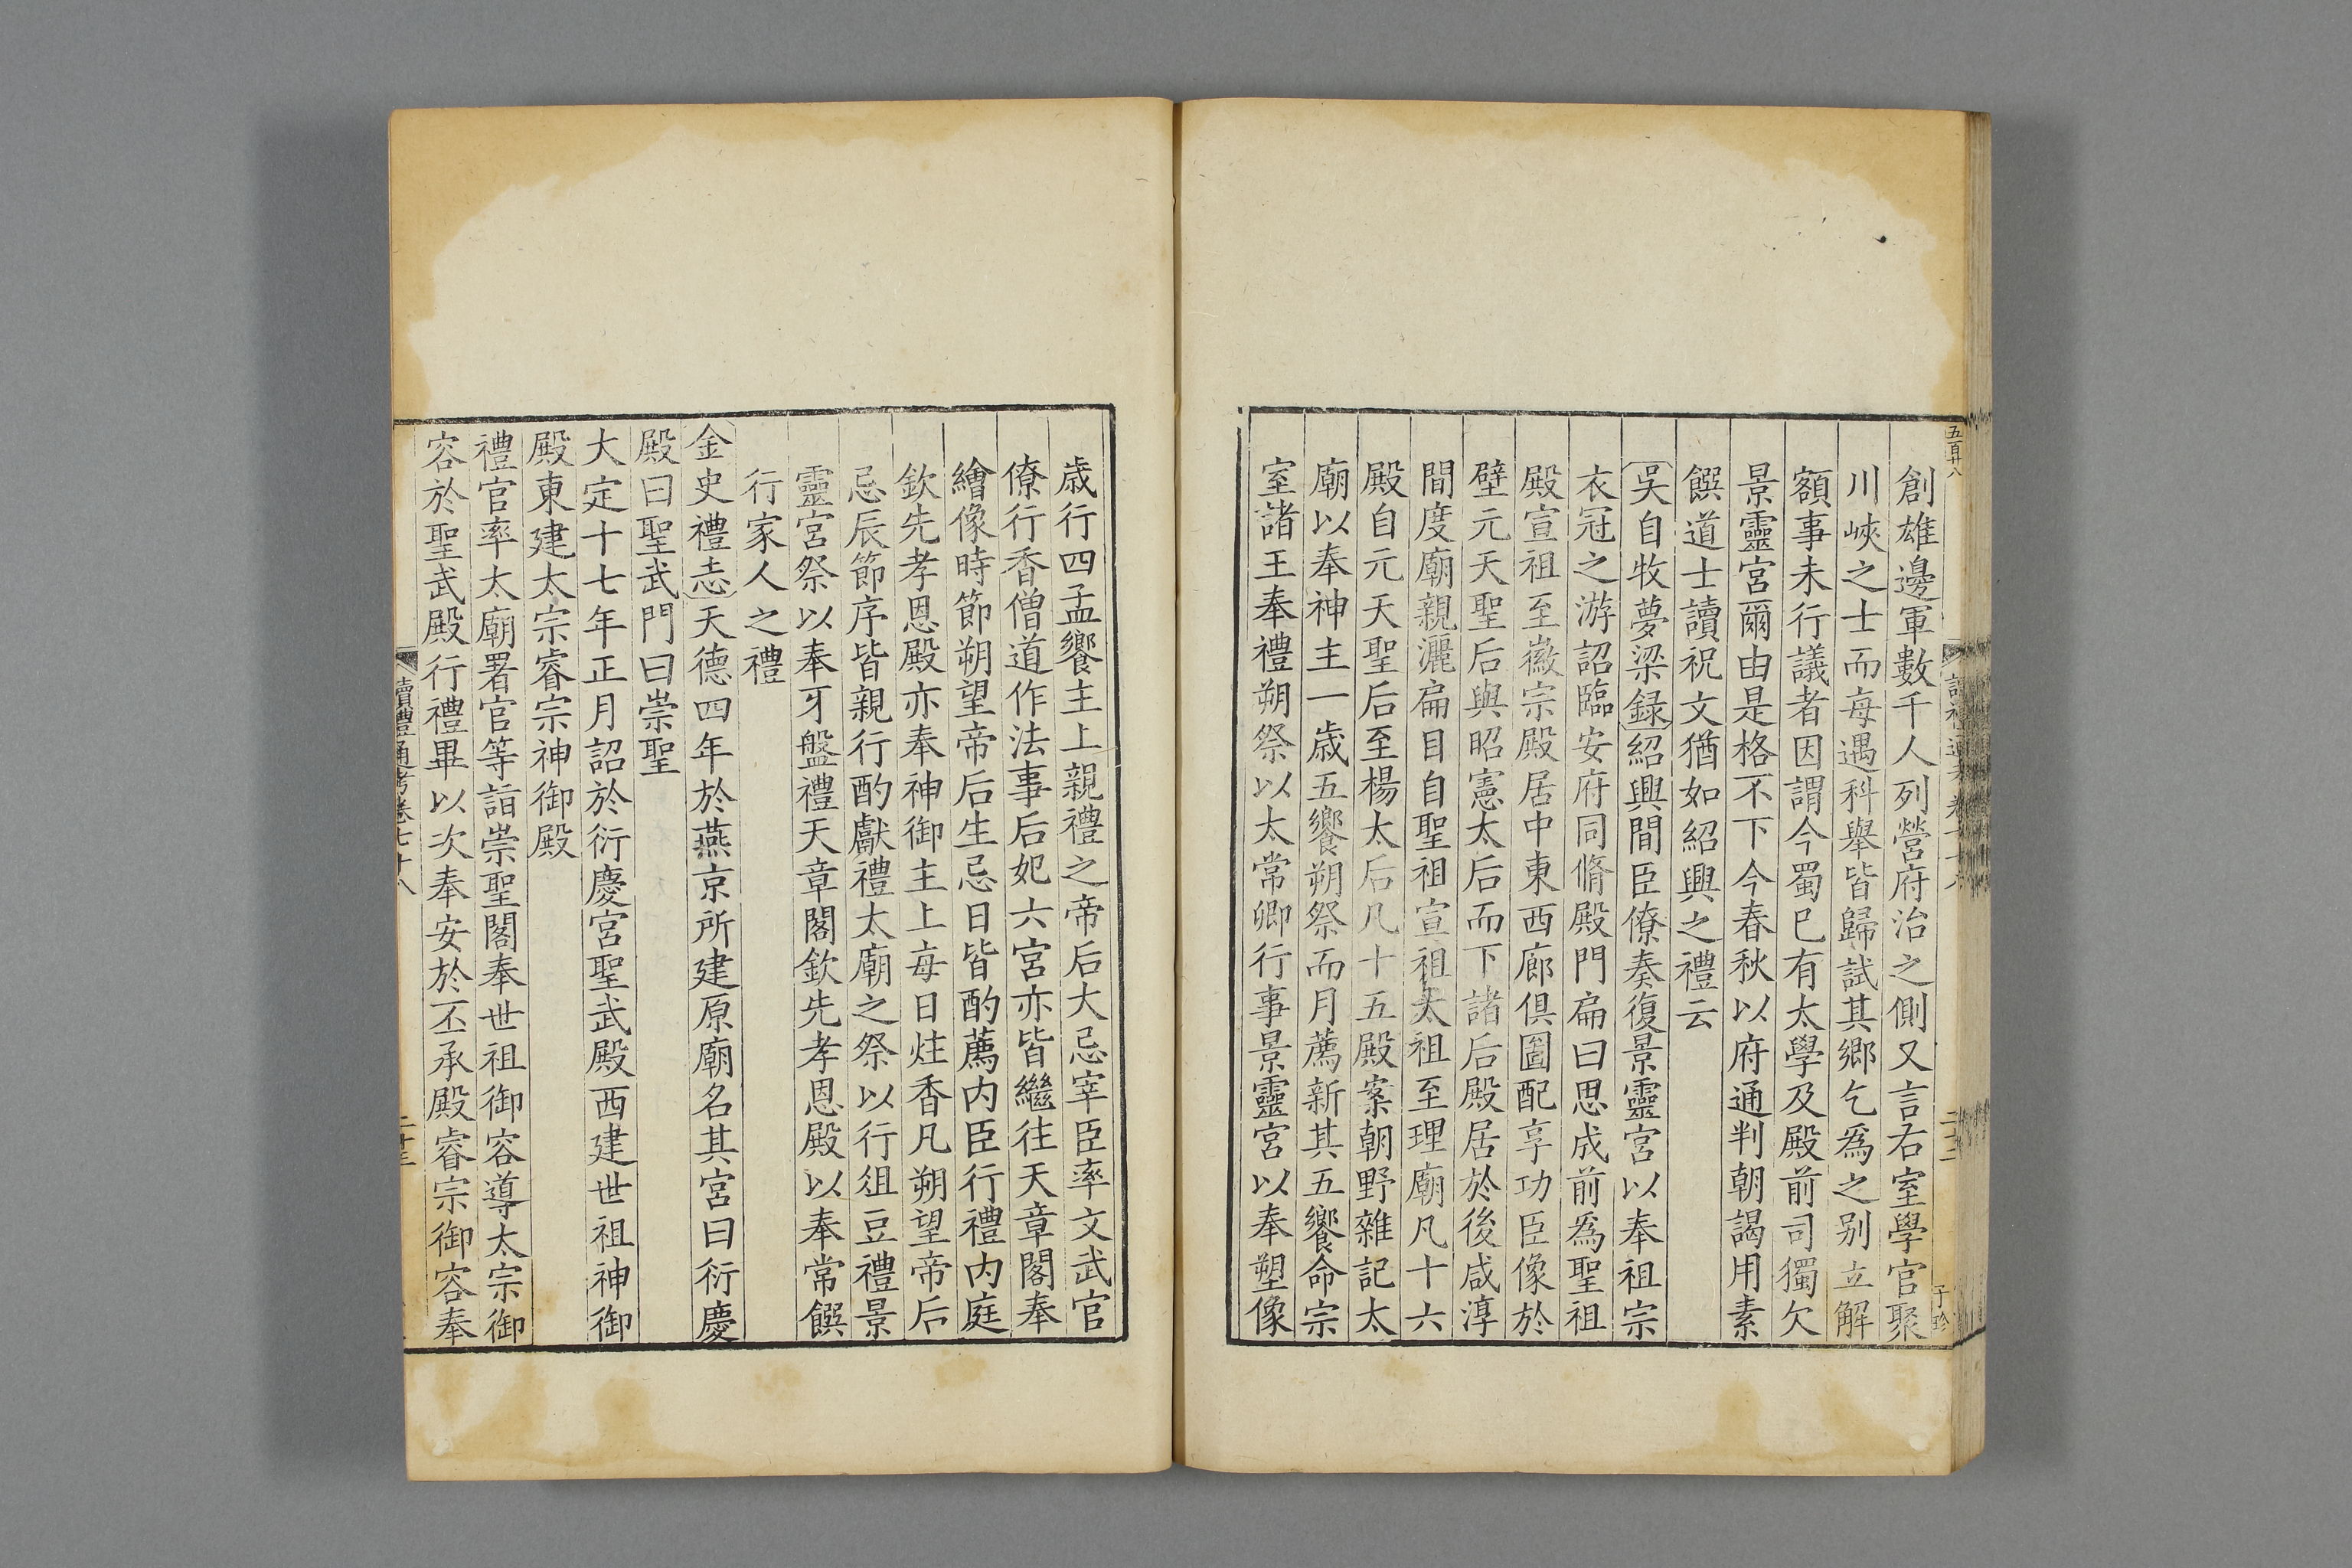 五百廿八
創雄邊軍數千人列營府治之側又言右室學官聚
川峽之士而每遇科舉皆歸試其鄉乞爲之别立解
額事未行議者因謂今蜀巳有太學及殿前司獨欠
景靈宮爾由是格不下今春秋以府通判朝謁用素
饌道士讀祝文猶如紹興之禮云
吳自牧夢梁録紹興間臣僚奏復景靈宮以奉祖宗
衣冠之游詔臨安府同脩殿門扁曰思成前爲聖祖
殿宣祖至徽宗殿居中東西廊俱圖配享功臣像於
壁元天聖后與昭憲太后而下諸后殿居於後咸淳
間度廟親灑扁目自聖祖宣祖太祖至理廟凡十六
殿自元天聖后至楊太后凡十五殿案朝野雜記太
廟以奉神主一歲五饗朔祭而月薦新其五饗命宗
室諸王奉禮朔祭以太常卿行事景靈宮以奉塑像
歲行四孟饗主上親禮之帝后大忌宰臣率文武官
僚行香僧道作法事后妃六宮亦皆繼往天章閣奉
繪像時節朔望帝后生忌日皆酌薦内臣行禮内庭
欽先孝恩殿亦奉神御主上每日炷香凡朔望帝后
忌辰節序皆親行酌獻禮太廟之祭以行俎豆禮景
靈宮祭以奉牙盤禮天章閣欽先孝恩殿以奉常饌
行家人之禮
金史禮志天德四年於燕京所建原廟名其宮曰衍慶
殿曰聖武門曰崇聖
大定十七年正月詔於衍慶宮聖武殿西建世祖神御
殿東建太宗睿宗神御殿
禮官率太廟署官等詣崇聖閣奉世祖御容導太宗御
容於聖武殿行禮畢以次奉安於丕承殿睿宗御容奉
讀禮通考卷七十八
二十三